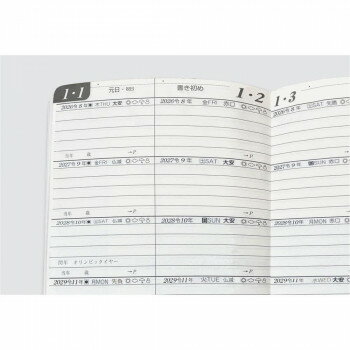 1・1
元日・
2026令8年 木THU 大安
当年 歳 →P.
2027令9年 金FRI 仏滅
当年 歳 →P.
2028令10年 土SAT 仏滅
閏年 オリンピックイヤー
2029令11年 月MON 先負
書き初め
1・2
2026令8年 金FRI 赤口
→P
2027令9年 土SAT 大安
→P
2028令10年 日SUN 大安
→P
2029令11年 火TUE 仏滅
1・3
2026令8年 土SAT 先勝
2027令9年
2028令10年 月MON 赤口
2029令11年 水WED 大安